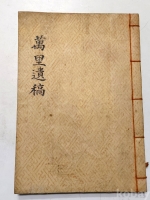 萬里遺稿